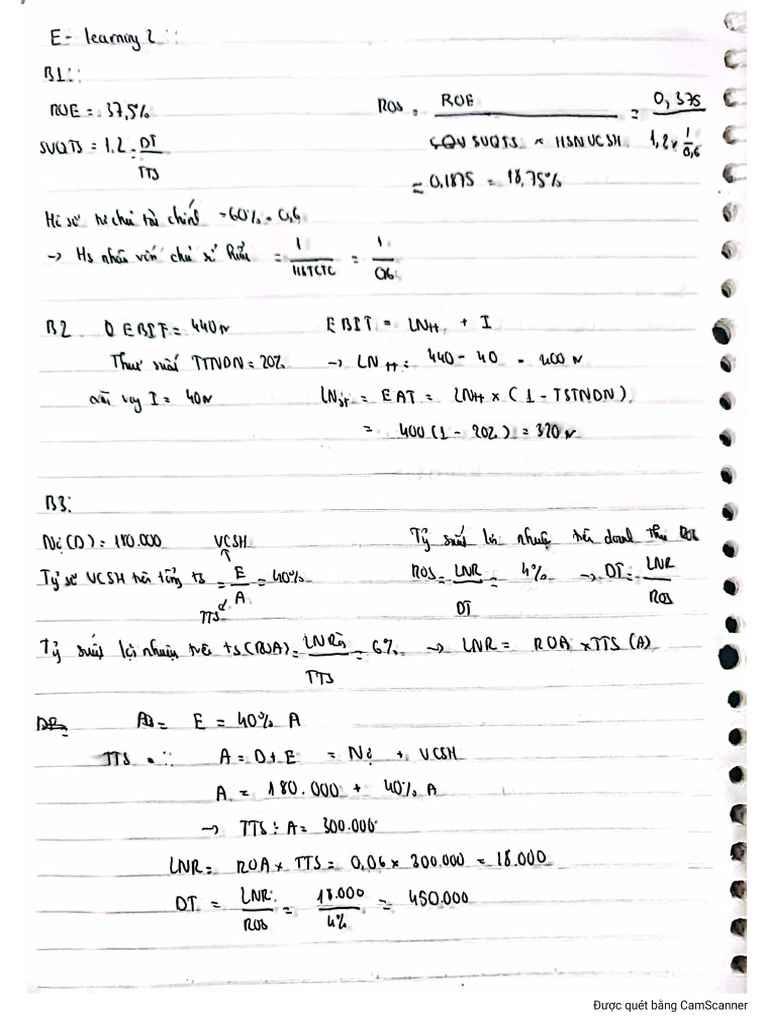 E- learning 2 ::
B1::
ROE = 37,5%
SUQTS = 1,2 = DT / TTS
ROS = ROE / (SQV SUQTS × HSNVCSH) = 0,375 / (1,2 × 1/0,6)
= 0,1875 = 18,75%
Hệ số tự chủ tài chính = 60% = 0,6
→ Hs nhân vốn chủ sở hữu = 1 / HSTCTC = 1 / 0,6
B2 EBIT = 440 tr
Thuế suất TTNDN = 20%
lãi vay I = 40 tr
EBIT = LNtt + I
→ LNtt = 440 - 40 = 400 tr
LNst = EAT = LNtt × (1 - TSTNDN)
= 400 (1 - 20%) = 320 tr
B3:
Nợ (D) = 180.000 VCSH
Tỷ số VCSH trên tổng ts = E / A = 40%
TTS
Tỷ suất lợi nhuận trên doanh thu ROS
ROS = LNR / DT = 4% → DT = LNR / ROS
Tỷ suất lợi nhuận trên ts (ROA) = LNRòng / TTS = 6% → LNR = ROA × TTS (A)
E = 40% A
TTS :: A = D + E = Nợ + VCSH
A = 180.000 + 40% A
→ TTS : A = 300.000
LNR = ROA × TTS = 0,06 × 300.000 = 18.000
DT = LNR / ROS = 18.000 / 4% = 450.000
Được quét bằng CamScanner